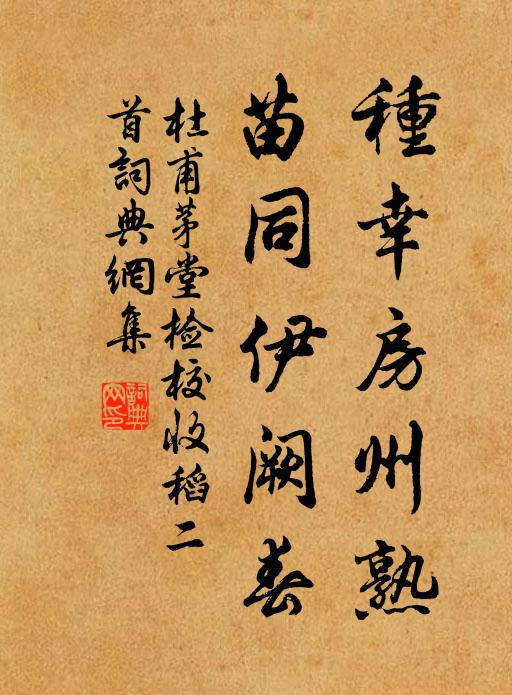 種幸房州熟
苗同伊阙春
杜甫茅堂检校收稻二
首詞典網集
詞典
网印